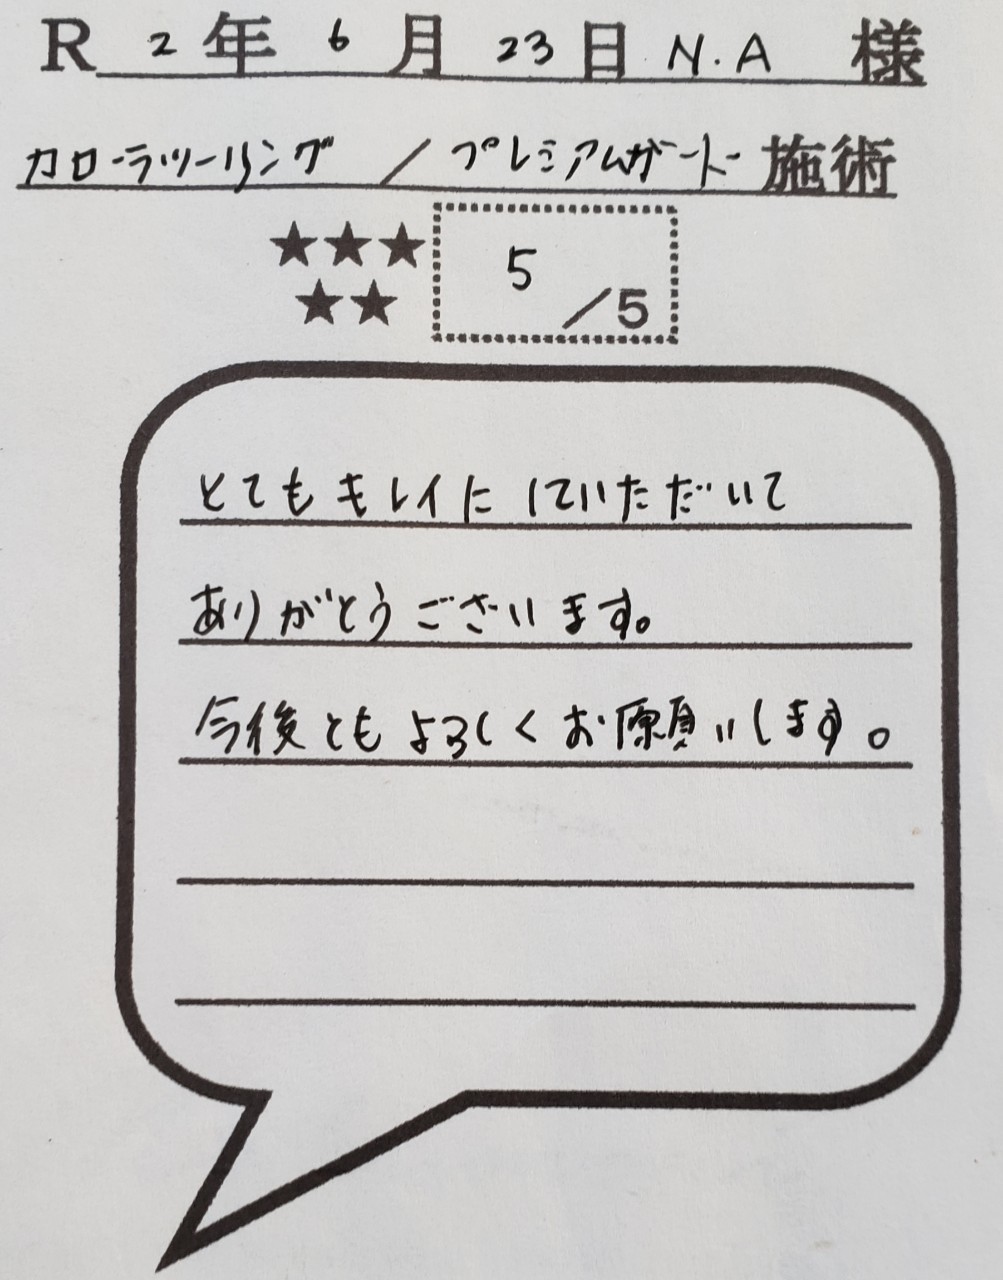 R 2年 6月 23日 N.A 様
カローラツーリング / プレミアムガード 施術
★★★
★★
5 /5
とてもキレイにしていただいて
ありがとうございます。
今後ともよろしくお願いします。